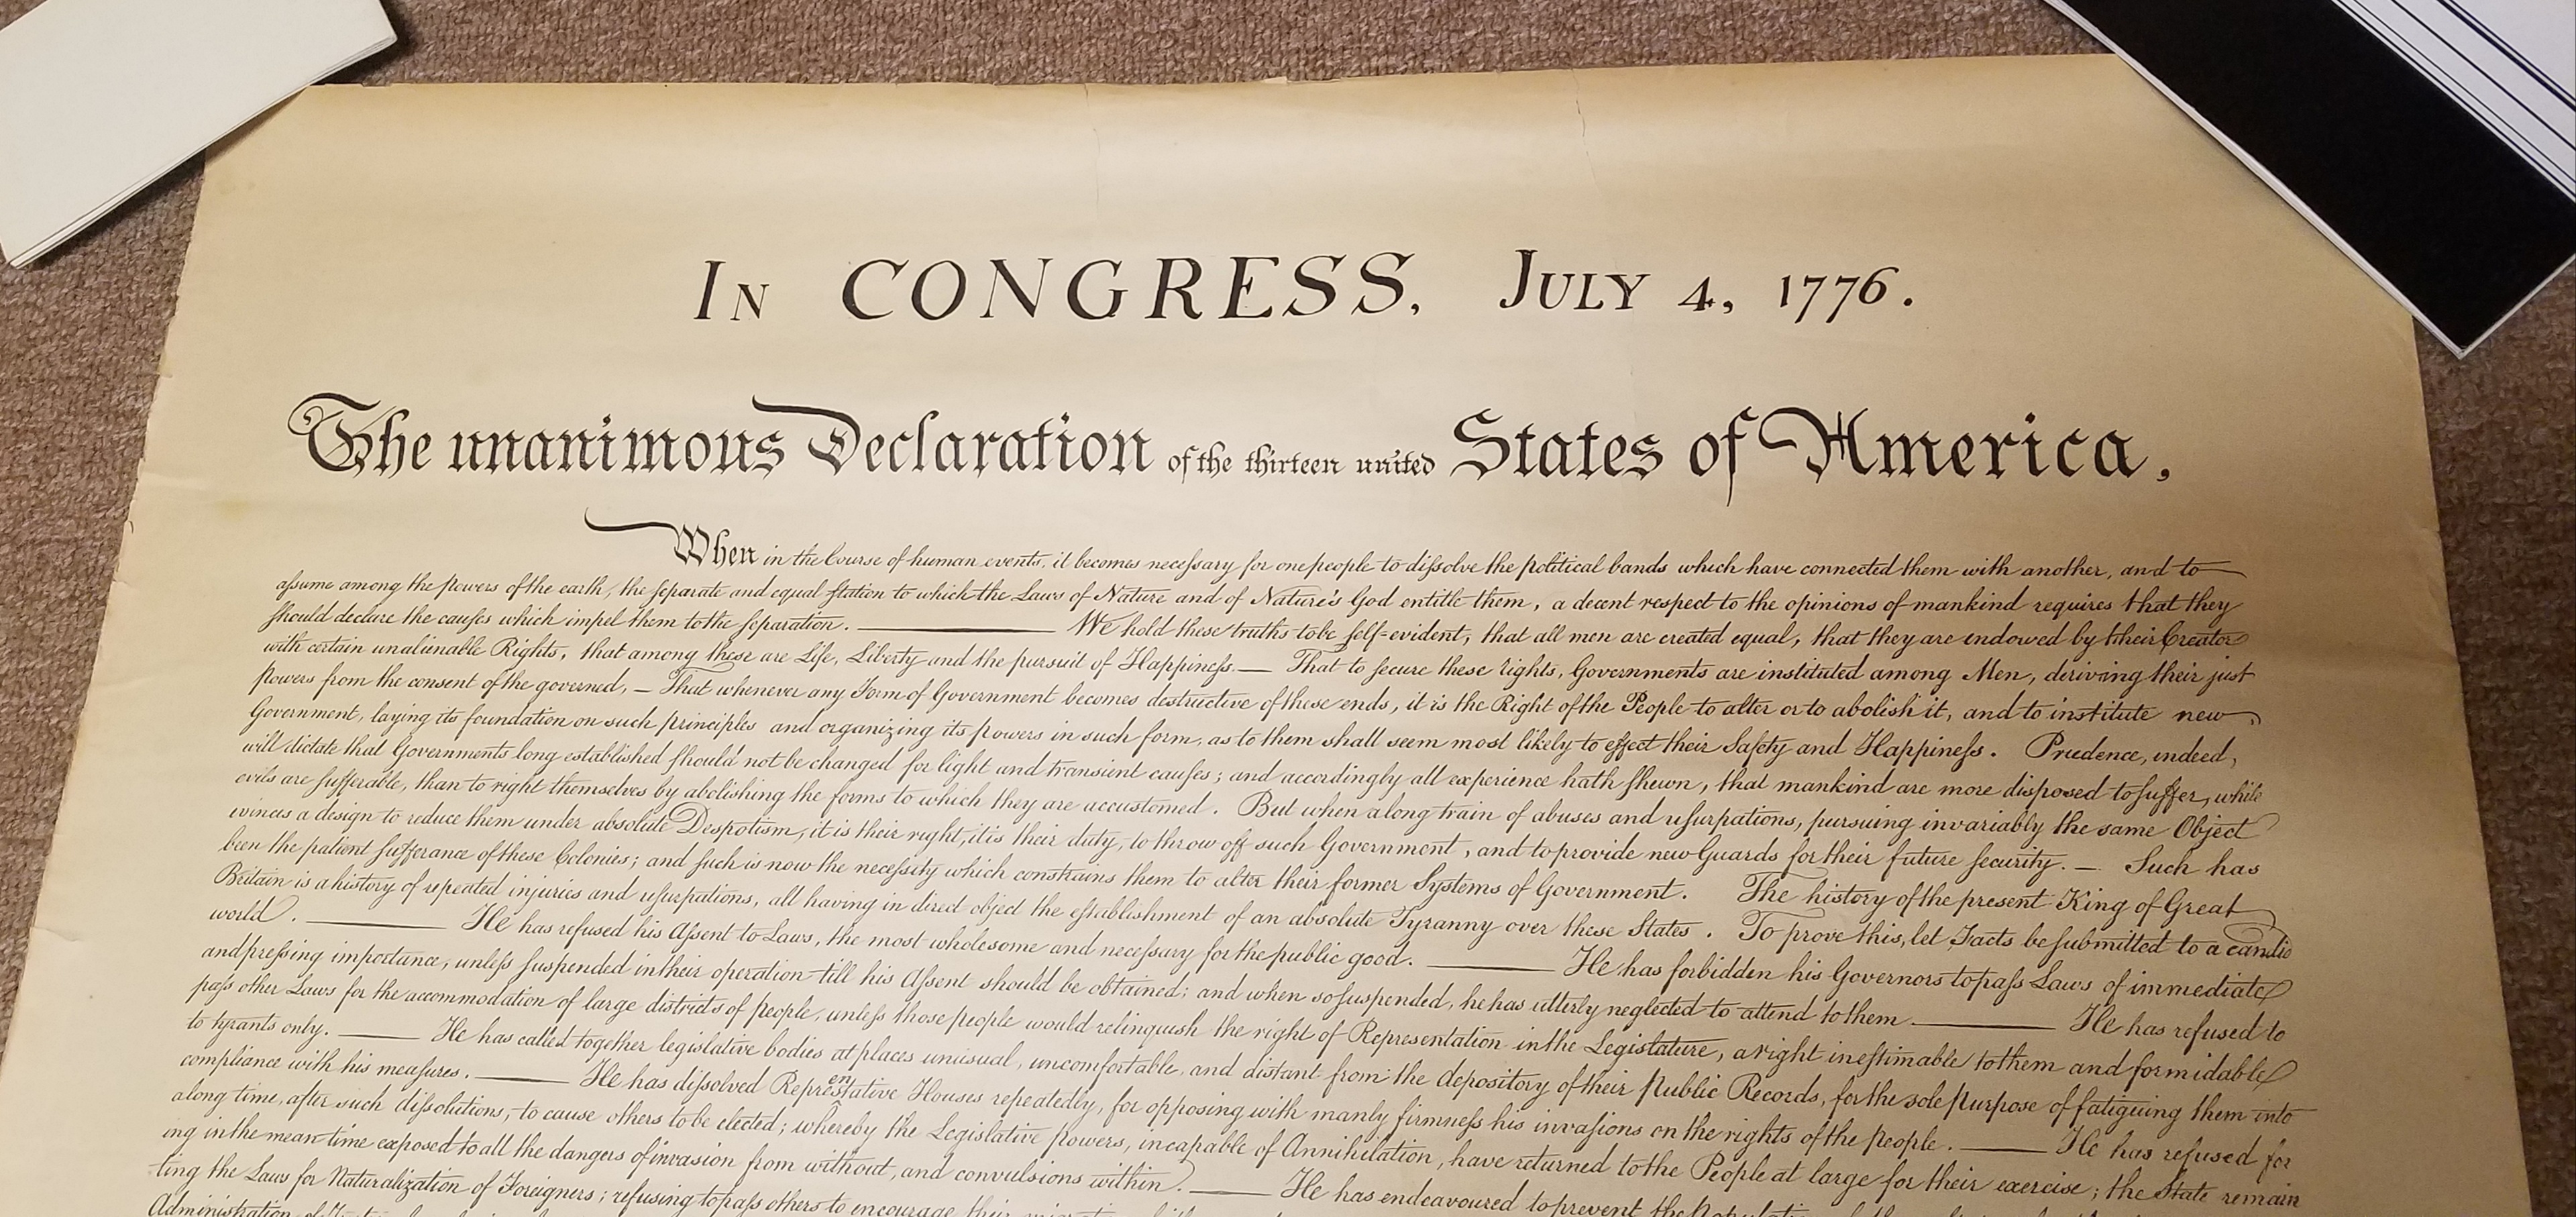 IN CONGRESS, JULY 4, 1776.
The unanimous Declaration of the thirteen united States of America,
When in the Course of human events, it becomes necessary for one people to dissolve the political bands which have connected them with another, and to
assume among the powers of the earth, the separate and equal station to which the Laws of Nature and of Nature's God entitle them, a decent respect to the opinions of mankind requires that they
should declare the causes which impel them to the separation. — We hold these truths to be self-evident, that all men are created equal, that they are endowed by their Creator
with certain unalienable Rights, that among these are Life, Liberty and the pursuit of Happiness. — That to secure these rights, Governments are instituted among Men, deriving their just
powers from the consent of the governed, — That whenever any Form of Government becomes destructive of these ends, it is the Right of the People to alter or to abolish it, and to institute new
Government, laying its foundation on such principles and organizing its powers in such form, as to them shall seem most likely to effect their Safety and Happiness. Prudence, indeed,
will dictate that Governments long established should not be changed for light and transient causes; and accordingly all experience hath shewn, that mankind are more disposed to suffer, while
evils are sufferable, than to right themselves by abolishing the forms to which they are accustomed. But when a long train of abuses and usurpations, pursuing invariably the same Object
evinces a design to reduce them under absolute Despotism, it is their right, it is their duty, to throw off such Government, and to provide new Guards for their future security. — Such has
been the patient sufferance of these Colonies; and such is now the necessity which constrains them to alter their former Systems of Government. The history of the present King of Great
Britain is a history of repeated injuries and usurpations, all having in direct object the establishment of an absolute Tyranny over these States. To prove this, let Facts be submitted to a candid
world. — He has refused his Assent to Laws, the most wholesome and necessary for the public good. — He has forbidden his Governors to pass Laws of immediate
and pressing importance, unless suspended in their operation till his Assent should be obtained; and when so suspended, he has utterly neglected to attend to them — He has refused to
pass other Laws for the accommodation of large districts of people, unless those people would relinquish the right of Representation in the Legislature, a right inestimable to them and formidable
to tyrants only. — He has called together legislative bodies at places unusual, uncomfortable, and distant from the depository of their Public Records, for the sole purpose of fatiguing them into
compliance with his measures. — He has dissolved Representative Houses repeatedly, for opposing with manly firmness his invasions on the rights of the people. — He has refused for
a long time, after such dissolutions, to cause others to be elected; whereby the Legislative powers, incapable of Annihilation, have returned to the People at large for their exercise; the State remain
ing in the mean time exposed to all the dangers of invasion from without, and convulsions within. — He has endeavoured to prevent the
ting the Laws for Naturalization of Foreigners; refusing to pass others to encourage their
Administration of